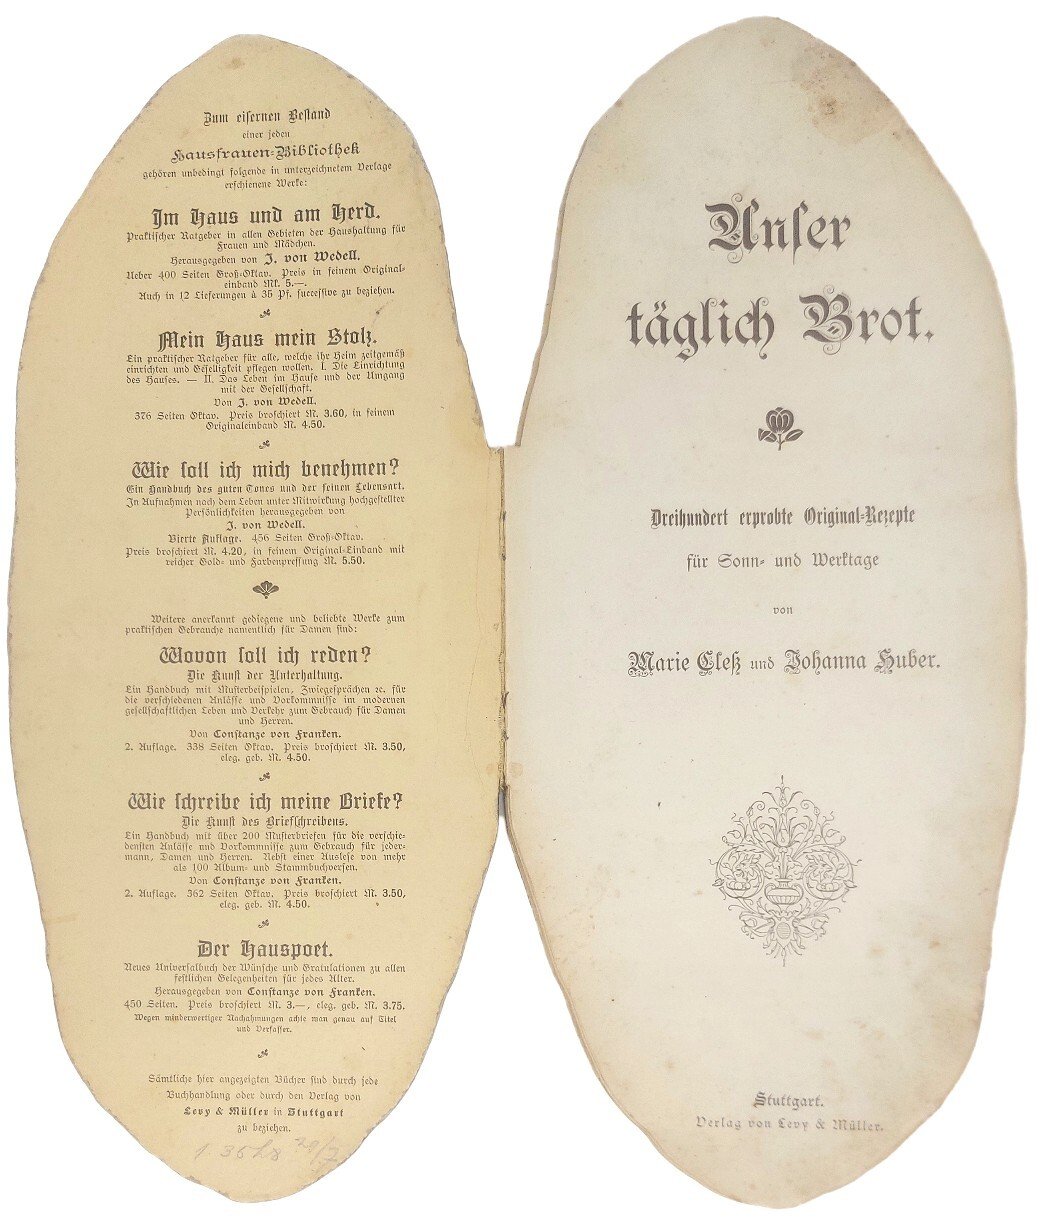 Zum eisernen Bestand
einer jeden
Hausfrauen-Bibliothek
gehören unbedingt folgende in unterzeichnetem Verlage
erschienene Werke:
Im Haus und am Herd.
Praktischer Ratgeber in allen Gebieten der Haushaltung für
Frauen und Mädchen.
Herausgegeben von J. von Wedell.
Ueber 400 Seiten Groß-Oktav. Preis in feinem Original-
einband Mk. 5.—.
Auch in 12 Lieferungen à 35 Pf. successive zu beziehen.
Mein Haus mein Stolz.
Ein praktischer Ratgeber für alle, welche ihr Heim zeitgemäß
einrichten und Geselligkeit pflegen wollen. I. Die Einrichtung
des Hauses. — II. Das Leben im Hause und der Umgang
mit der Gesellschaft.
Von J. von Wedell.
376 Seiten Oktav. Preis broschiert M. 3.60, in feinem
Originaleinband M. 4.50.
Wie soll ich mich benehmen?
Ein Handbuch des guten Tones und der feinen Lebensart.
In Aufnahmen nach dem Leben unter Mitwirkung hochgestellter
Persönlichkeiten herausgegeben von
J. von Wedell.
Vierte Auflage. 456 Seiten Groß-Oktav.
Preis broschiert M. 4.20, in feinem Original-Einband mit
reicher Gold- und Farbenpressung M. 5.50.
Weitere anerkannt gediegene und beliebte Werke zum
praktischen Gebrauche namentlich für Damen sind:
Wovon soll ich reden?
Die Kunst der Unterhaltung.
Ein Handbuch mit Musterbeispielen, Zwiegesprächen ꝛc. für
die verschiedenen Anlässe und Vorkommnisse im modernen
gesellschaftlichen Leben und Verkehr zum Gebrauch für Damen
und Herren.
Von Constanze von Franken.
2. Auflage. 338 Seiten Oktav. Preis broschiert M. 3.50,
eleg. geb. M. 4.50.
Wie schreibe ich meine Briefe?
Die Kunst des Briefschreibens.
Ein Handbuch mit über 200 Musterbriefen für die verschie-
densten Anlässe und Vorkommnisse zum Gebrauch für jeder-
mann, Damen und Herren. Nebst einer Auslese von mehr
als 100 Album- und Stammbuchversen.
Von Constanze von Franken.
2. Auflage. 362 Seiten Oktav. Preis broschiert M. 3.50,
eleg. geb. M. 4.50.
Der Hauspoet.
Neues Universalbuch der Wünsche und Gratulationen zu allen
festlichen Gelegenheiten für jedes Alter.
Herausgegeben von Constanze von Franken.
450 Seiten. Preis broschiert M. 3.—, eleg. geb. M. 3.75.
Wegen minderwertiger Nachahmungen achte man genau auf Titel
und Verfasser.
Sämtliche hier angezeigten Bücher sind durch jede
Buchhandlung oder durch den Verlag von
Levy & Müller in Stuttgart
zu beziehen.
Unser
täglich Brot.
Dreihundert erprobte Original-Rezepte
für Sonn- und Werktage
von
Marie Cleß und Johanna Huber.
Stuttgart.
Verlag von Levy & Müller.